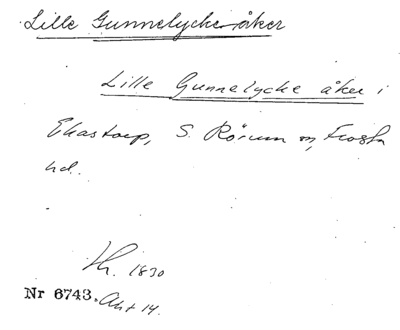 Lille Gunnelycke åker
Lille Gunnelycke åker i
Ekastorp, S. Rörum sn, Frosta
hd.
Th. 1830
Nr 6743. Akt 14.